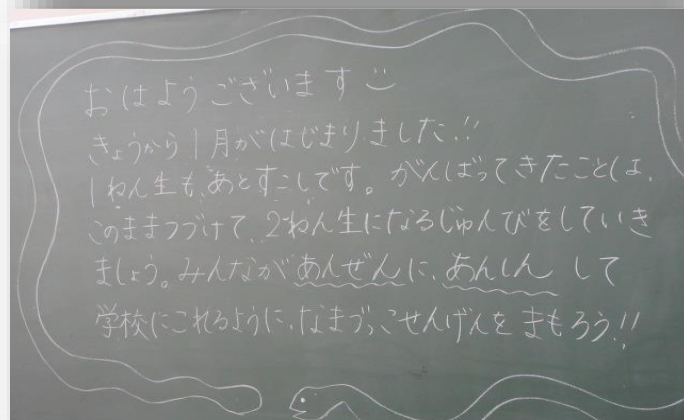 おはようございます
きょうから1月がはじまりました!!
1ねん生も、あとすこしです。がんばってきたことは、
このままつづけて、2ねん生になるじゅんびをしていき
ましょう。みんながあんぜんに、あんしんして
学校にこれるように、なまづっこせんげんをまもろう!!